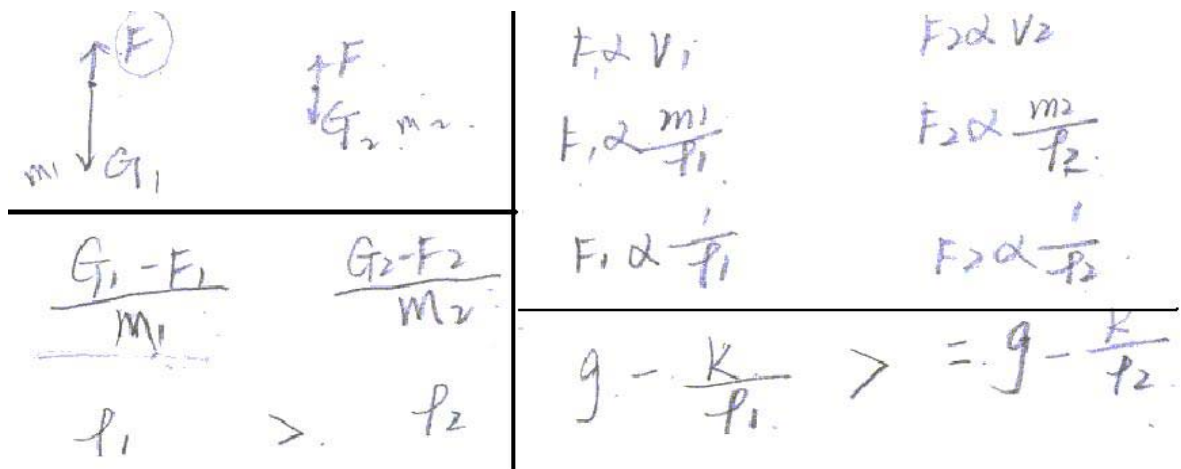 F F
G₂ m₂.
m₁ G₁
(G₁ - F₁)/m₁ (G₂-F₂)/m₂
ρ₁ > ρ₂
F₁ ∝ V₁ F₂ ∝ V₂
F₁ ∝ m₁/ρ₁ F₂ ∝ m₂/ρ₂.
F₁ ∝ 1/ρ₁ F₂ ∝ 1/ρ₂
g - K/ρ₁ > = g - K/ρ₂